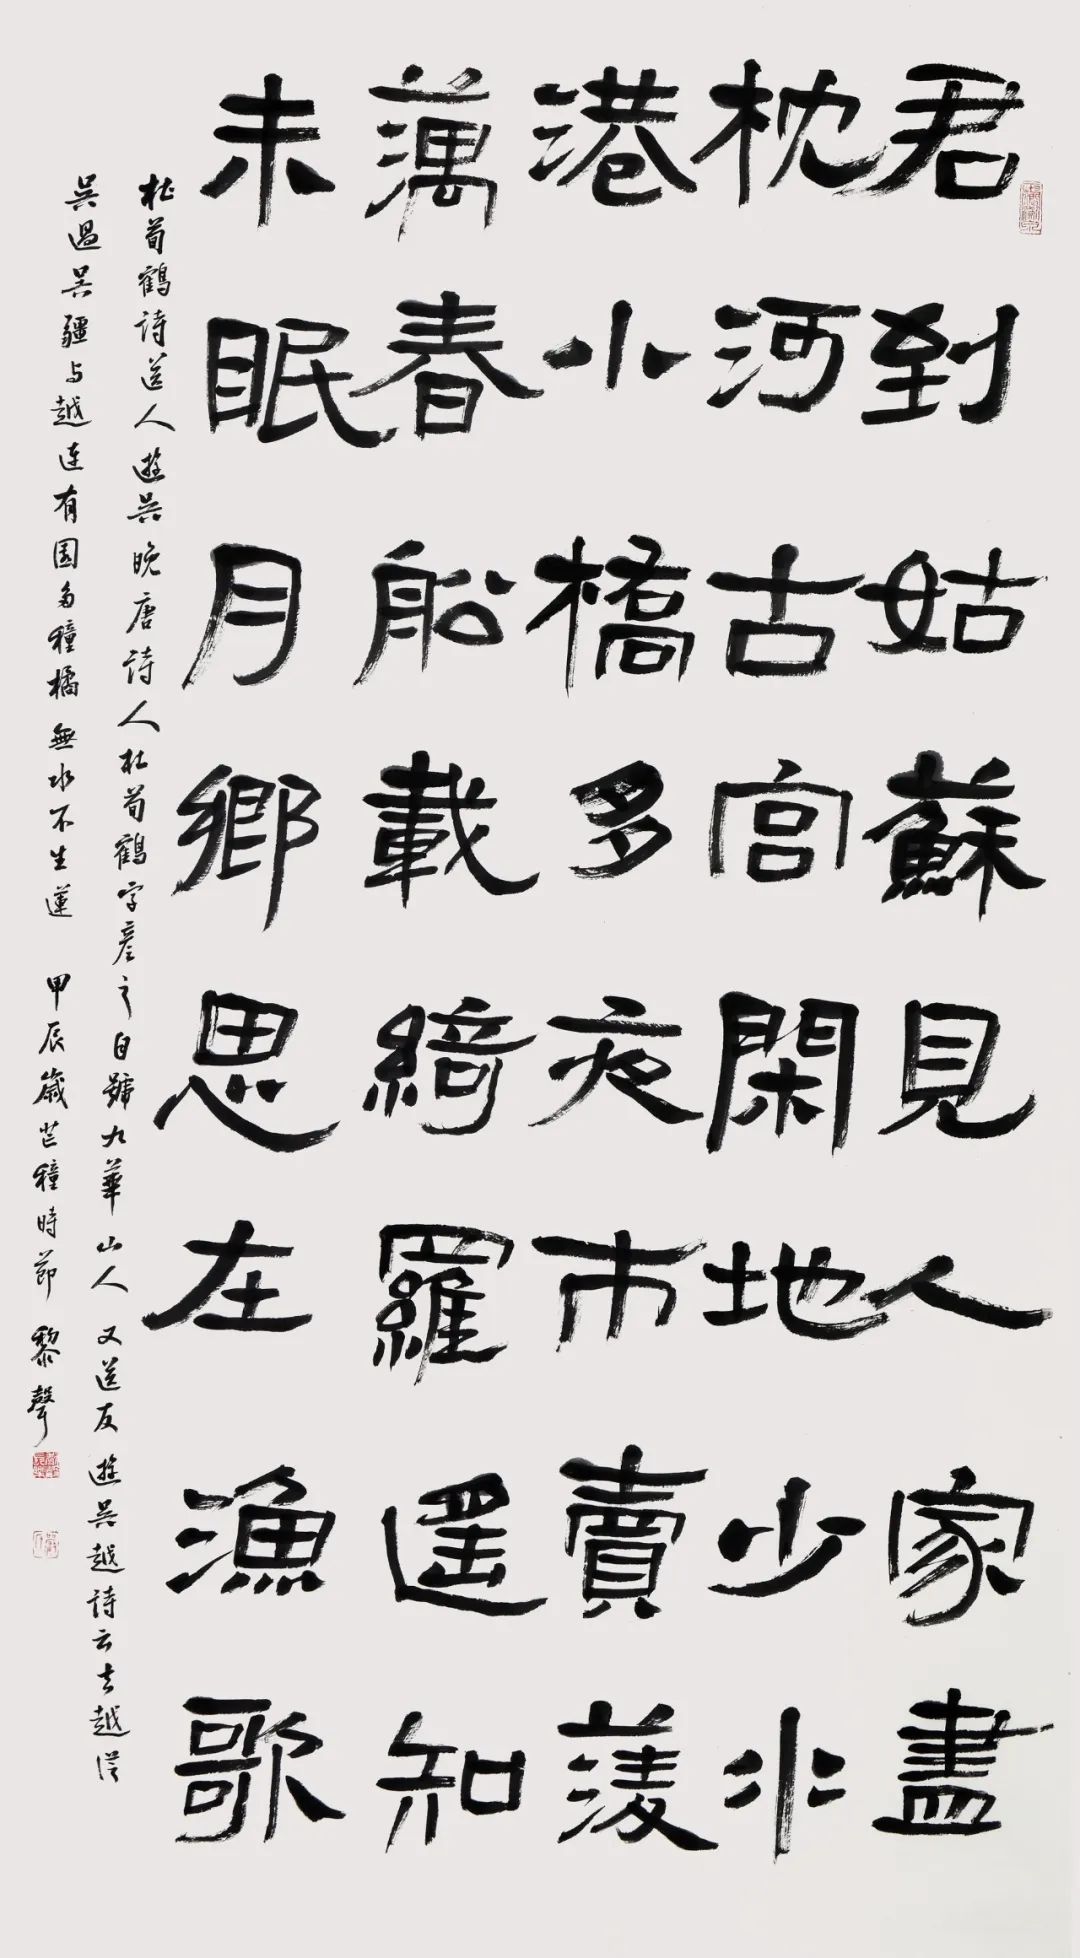 君到姑蘇見人家盡
枕河古宮閑地少水
港小橋多夜市賣菱
藕春船載綺羅遥知
未眠月鄉思在漁歌
杜荀鶴詩送人遊吳晚唐詩人杜荀鶴字彦之自號九華山人又送友遊吳越詩云去越從
吳過吳疆与越連有園多種橘無水不生蓮甲辰歲芒種時節黎聲